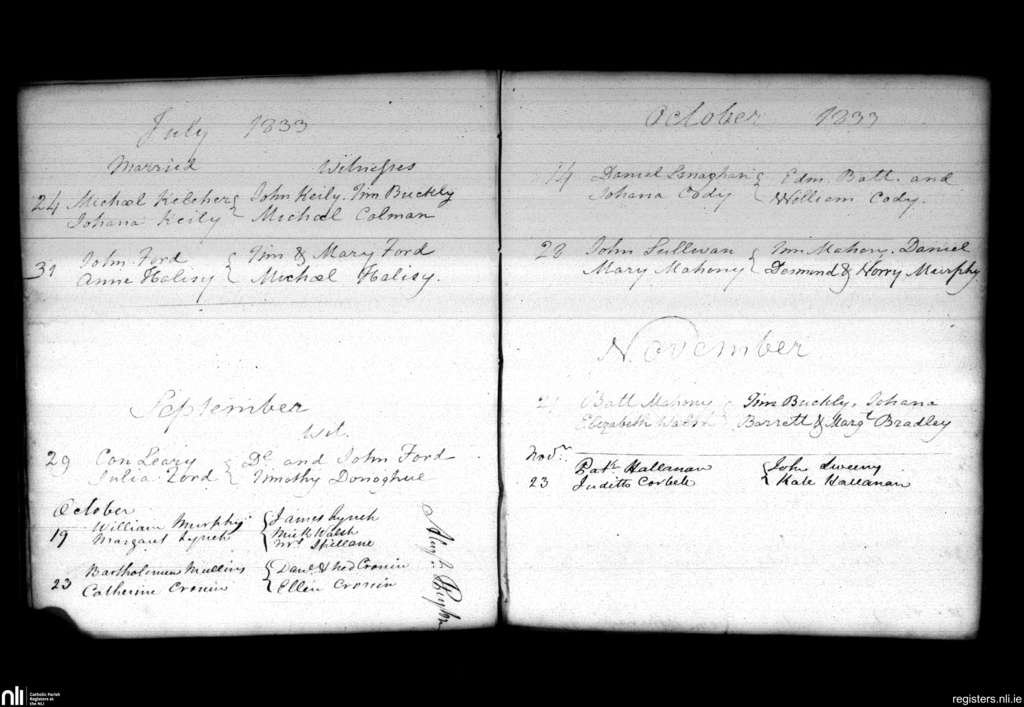 July 1833
Married Witnesses
24 Michael Kelcher John Keily. Tim Buckly
Johana Keily Michael Colman
31 John Ford Tim & Mary Ford
Anne Halisy Michael Halisy.
September
Wit.
29 Con Leary Dl. and John Ford
Julia Ford Timothy Donoghue
October
19 William Murphy James Lynch
Margaret Lynch Mick Walsh
Spillane
23 Bartholomew Mullins Danl. & Ned Cronin
Catherine Cronin Ellen Cronin
October 1833
14 Daniel Edm. Batt. and
Johana Cody William Cody.
28 John Sullivan Tim Mahony. Daniel
Mary Mahony Desmond & Norry Murphy
November
21 Batt Mahony Tim Buckly, Johana
Elizabeth Walsh Barrett & Margt. Bradley
Novr.
23 Patk. Hallanan John Sweeny
Judith Corbett Kate Hallanan
nli Catholic Parish
Registers at
the NLI
registers.nli.ie